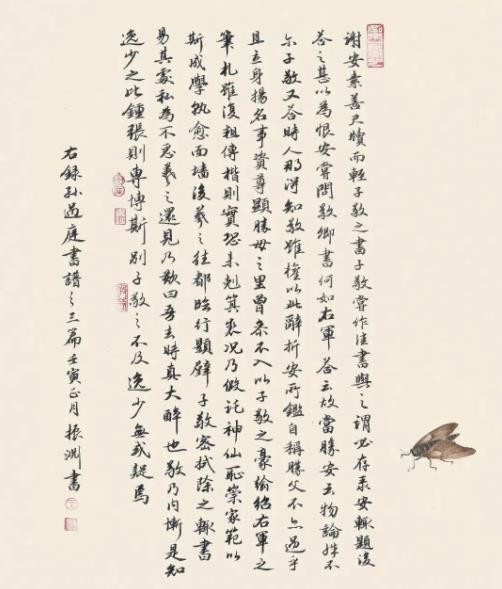 謝安素善尺牘而輕子敬之書子敬嘗作佳書與之謂必存录安輒題後
答之甚以為恨安嘗問敬卿書何如右軍答云故當勝安云物論殊不
尔子敬又答時人那得知敬雖權以此辭折安所鑒自稱勝父不亦過乎
且立身揚名事資尊顯勝母之里曾参不入以子敬之豪翰紹右軍之
筆札雖復粗傳楷則實恐未剋箕裘况乃假託神仙恥崇家範以
斯成學孰愈面墻後羲之往都臨行題壁子敬密拭除之輒書
易其處私為不惡羲之還見乃歎曰吾去時真大醉也敬乃内慚是知
逸少之比鍾張則專博斯別子敬之不及逸少無或疑焉
右錄孫過庭書譜之三篇壬寅正月振淵書